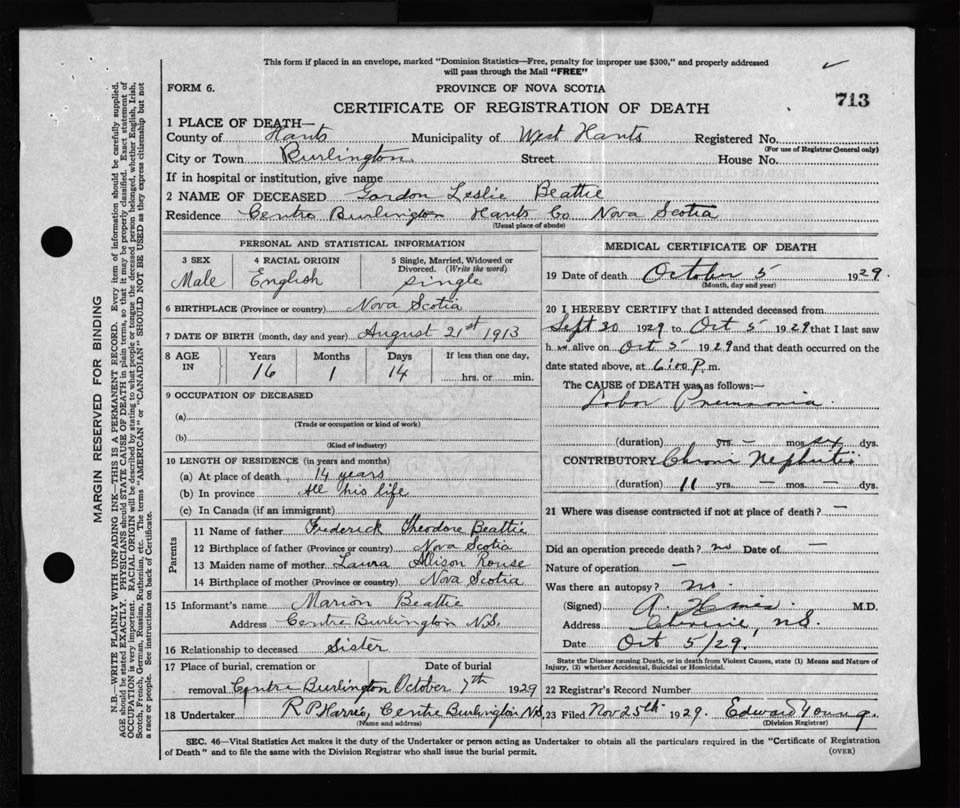 This form if placed in an envelope, marked "Dominion Statistics—Free, penalty for improper use $300," and properly addressed
will pass through the Mail "FREE"
FORM 6.
PROVINCE OF NOVA SCOTIA
713
CERTIFICATE OF REGISTRATION OF DEATH
1 PLACE OF DEATH—
County of Hants Municipality of West Hants Registered No.
(For use of Registrar General only)
City or Town Burlington Street House No.
If in hospital or institution, give name
2 NAME OF DECEASED Gordon Leslie Beattie
Residence Centre Burlington Hants Co. Nova Scotia
(Usual place of abode)
PERSONAL AND STATISTICAL INFORMATION
3 SEX 4 RACIAL ORIGIN 5 Single, Married, Widowed or
Divorced. (Write the word)
Male English Single
6 BIRTHPLACE (Province or country) Nova Scotia
7 DATE OF BIRTH (month, day and year) August 21st 1913
8 AGE IN Years Months Days If less than one day,
16 1 14 hrs. or min.
9 OCCUPATION OF DECEASED
(a)
(Trade or occupation or kind of work)
(b)
(Kind of industry)
10 LENGTH OF RESIDENCE (in years and months)
(a) At place of death 14 years
(b) In province All his life
(c) In Canada (if an immigrant)
Parents
11 Name of father Frederick Theodore Beattie
12 Birthplace of father (Province or country) Nova Scotia
13 Maiden name of mother Laura Allison Rouse
14 Birthplace of mother (Province or country) Nova Scotia
15 Informant's name Marion Beattie
Address Centre Burlington N.S.
16 Relationship to deceased Sister
17 Place of burial, cremation or Date of burial
removal Centre Burlington October 7th 1929
18 Undertaker R P Harris, Centre Burlington N.S.
(Name and address)
MEDICAL CERTIFICATE OF DEATH
19 Date of death October 5 1929.
(Month, day and year)
20 I HEREBY CERTIFY that I attended deceased from
Sept 30 1929 to Oct 5 1929 that I last saw
h im alive on Oct 5 1929 and that death occurred on the
date stated above, at 6:00 P. m.
The CAUSE of DEATH was as follows:—
Lobar Pneumonia.
(duration) yrs. — mos. six dys.
CONTRIBUTORY Chronic Nephritis
(duration) 11 yrs. — mos. — dys.
21 Where was disease contracted if not at place of death? —
Did an operation precede death? no Date of —
Nature of operation —
Was there an autopsy? no.
(Signed) A. M.D.
Address N.S.
Date Oct 5/29.
State the Disease causing Death, or in death from Violent Causes, state (1) Means and Nature of
Injury, (2) whether Accidental, Suicidal or Homicidal.
22 Registrar's Record Number
23 Filed Nov 25th 1929. Edward Young.
(Division Registrar)
SEC. 46—Vital Statistics Act makes it the duty of the Undertaker or person acting as Undertaker to obtain all the particulars required in the "Certificate of Registration
of Death" and to file the same with the Division Registrar who shall issue the burial permit.
(OVER)
MARGIN RESERVED FOR BINDING
N.B.—WRITE PLAINLY WITH UNFADING INK—THIS IS A PERMANENT RECORD. Every item of information should be carefully supplied.
AGE should be stated EXACTLY. PHYSICIANS should STATE CAUSE OF DEATH in plain terms, so that it may be properly classified. Exact statement of
OCCUPATION is very important. RACIAL ORIGIN will be described by stating to what people or tongue the deceased person belonged, whether English, Irish,
Scotch, French, German, Russian, Ruthenian, etc. The terms "AMERICAN" or "CANADIAN" SHOULD NOT BE USED as they express citizenship but not
a race or people. See instructions on back of Certificate.